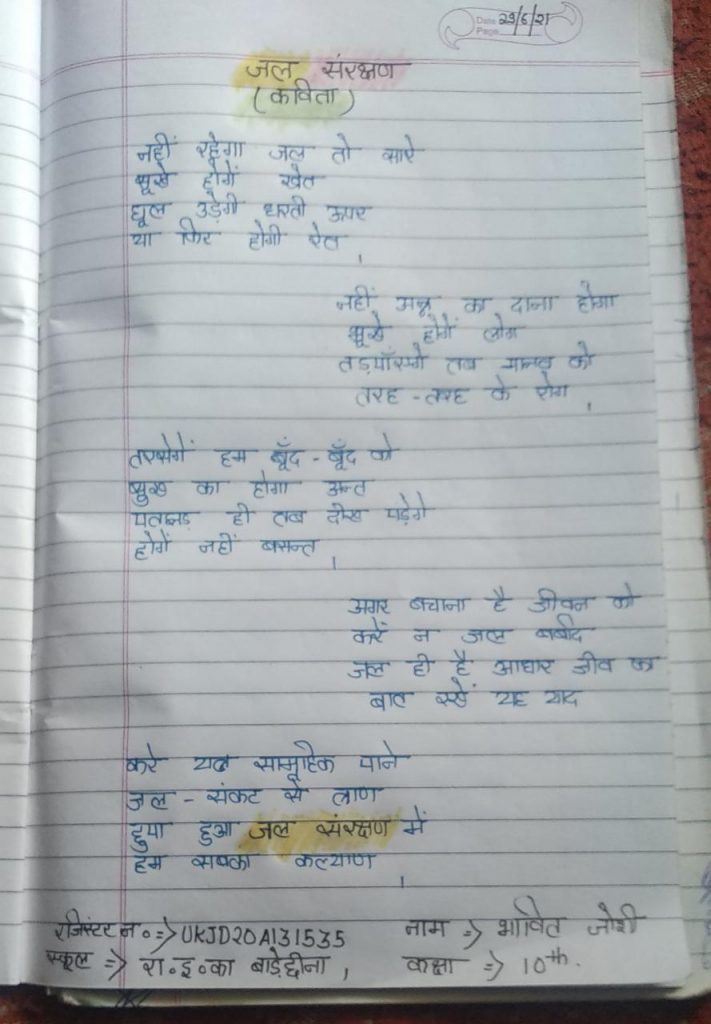 Date 29/6/21
Page
जल संरक्षण
(कविता)
नहीं रहेगा जल तो सारे
सूखे होगें खेत
धूल उड़ेगी धरती ऊपर
या फिर होगी रेत ।
नहीं अन्न का दाना होगा
भूखे होगें लोग
तड़पाँएगे तब मानव को
तरह - तरह के रोग ।
तरसेगें हम बूँद - बूँद को
सुख का होगा अन्त
पतझड़ ही तब दीख पड़ेगे
होगें नहीं बसन्त ।
अगर बचाना है जीवन को
करें न जल बर्बाद
जल ही है आधार जीव का
बात रखें यह याद
करे यत्न सामूहिक पाने
जल - संकट से त्राण
छुपा हुआ जल संरक्षण में
हम सबका कल्याण ।
रजिस्टर न. => UKJD20A131535 नाम => भावित जोशी
स्कूल => रा.इ.का बाड़ेछीना, कक्षा => 10th.